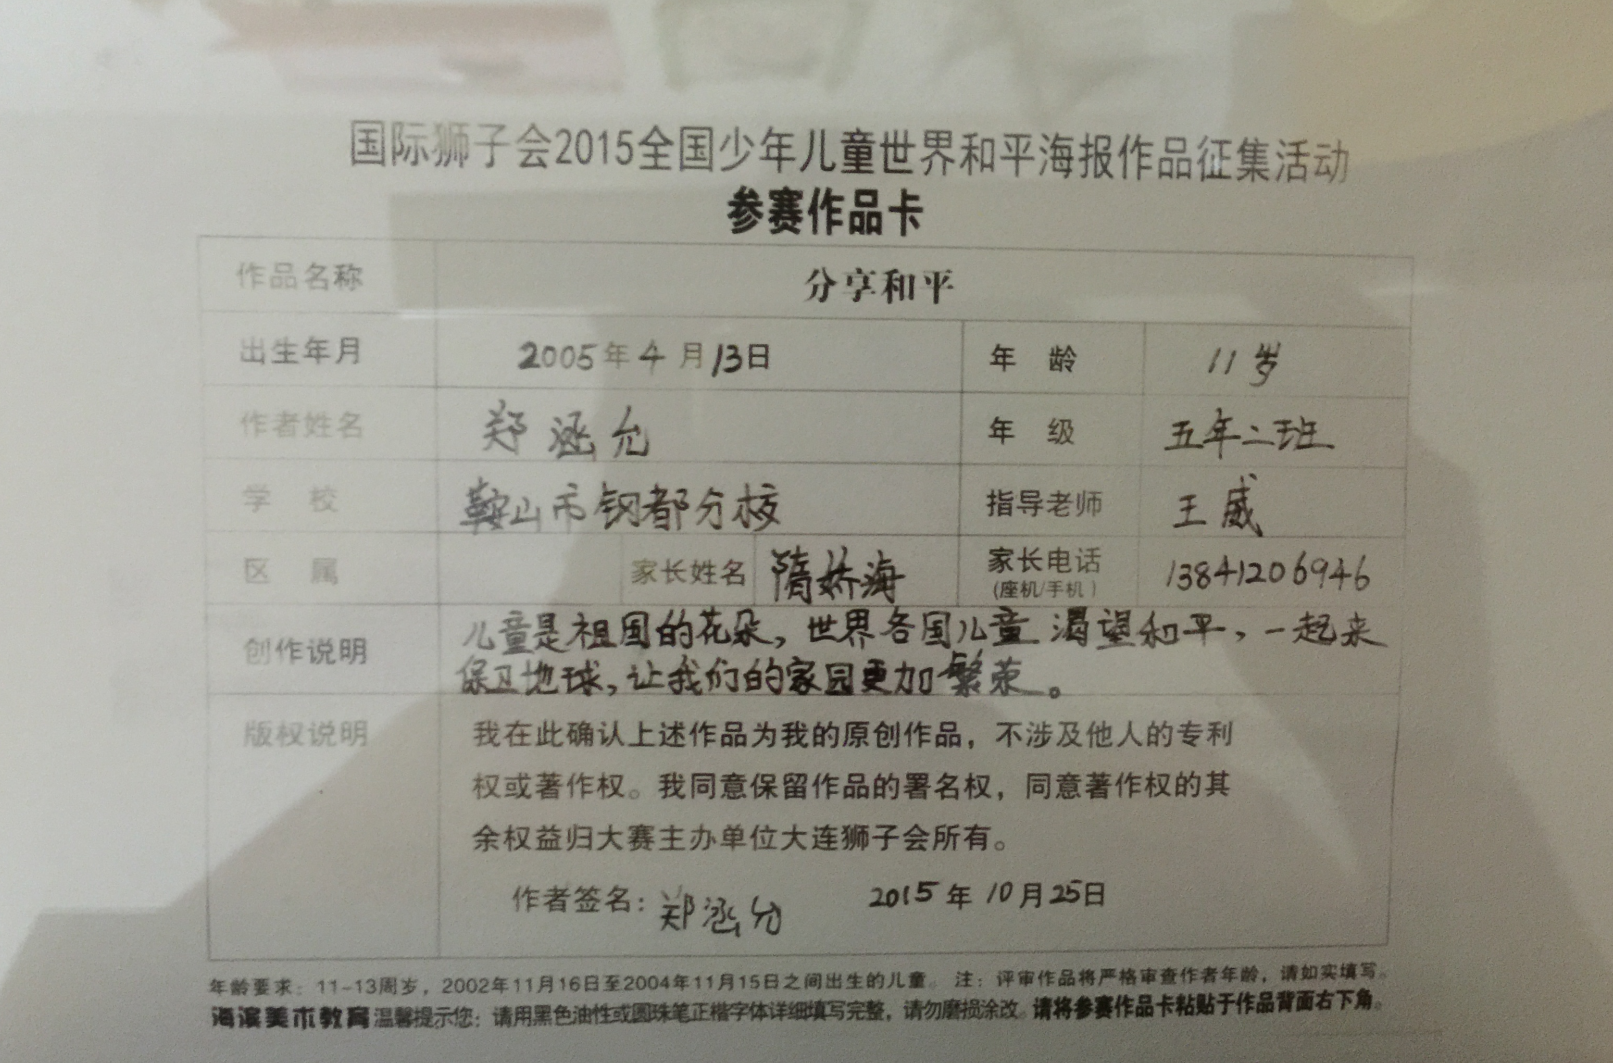 国际狮子会2015全国少年儿童世界和平海报作品征集活动
参赛作品卡
作品名称 分享和平
出生年月 2005年4月13日 年 龄 11岁
作者姓名 郑涵允 年 级 五年二班
学 校 鞍山市钢都分校 指导老师 王威
区 属 家长姓名 隋娇海 家长电话 13841206946
(座机/手机)
创作说明 儿童是祖国的花朵，世界各国儿童渴望和平，一起来
保卫地球，让我们的家园更加繁荣。
版权说明 我在此确认上述作品为我的原创作品，不涉及他人的专利
权或著作权。我同意保留作品的署名权，同意著作权的其
余权益归大赛主办单位大连狮子会所有。
作者签名：郑涵允 2015年10月25日
年龄要求：11-13周岁，2002年11月16日至2004年11月15日之间出生的儿童。 注：评审作品将严格审查作者年龄，请如实填写。
海滨美术教育 温馨提示您：请用黑色油性或圆珠笔正楷字体详细填写完整，请勿磨损涂改。请将参赛作品卡粘贴于作品背面右下角。